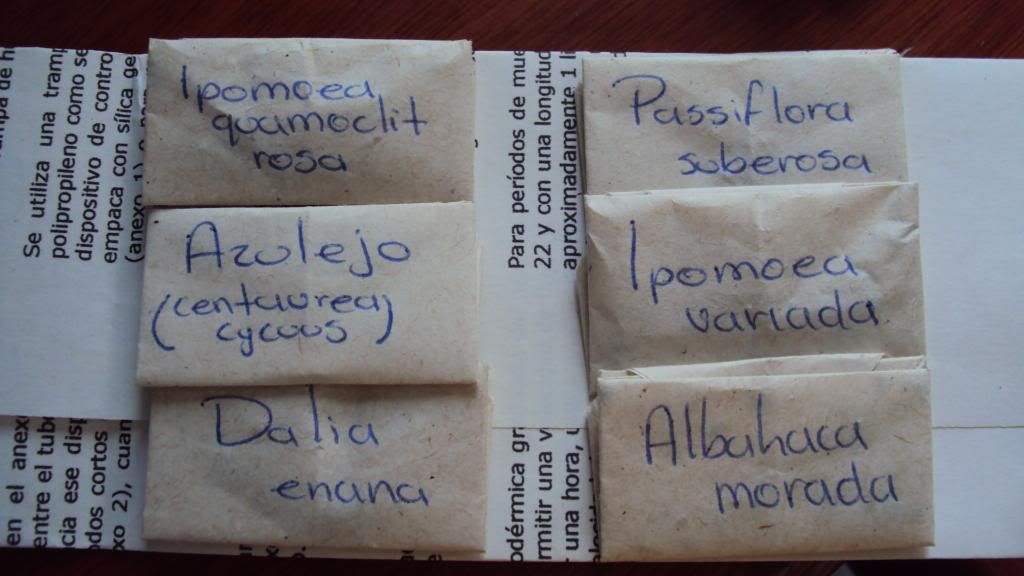 Ipomoea
quamoclit
rosa
Passiflora
suberosa
Azulejo
(centaurea
cycous)
Ipomoea
variada
Dalia
enana
Albahaca
morada
Se utiliza una tramp
polipropileno como se
dispositivo de contro
empaca con sílica ge
(anexo 1)
Para períodos de mue
22 y con una longitud
aproximadamente 1 li
en el anexo
entre el tubo
ncia ese disp
odos cortos
exo 2), cuan
odérmica gr
rmitir una v
r una hora,